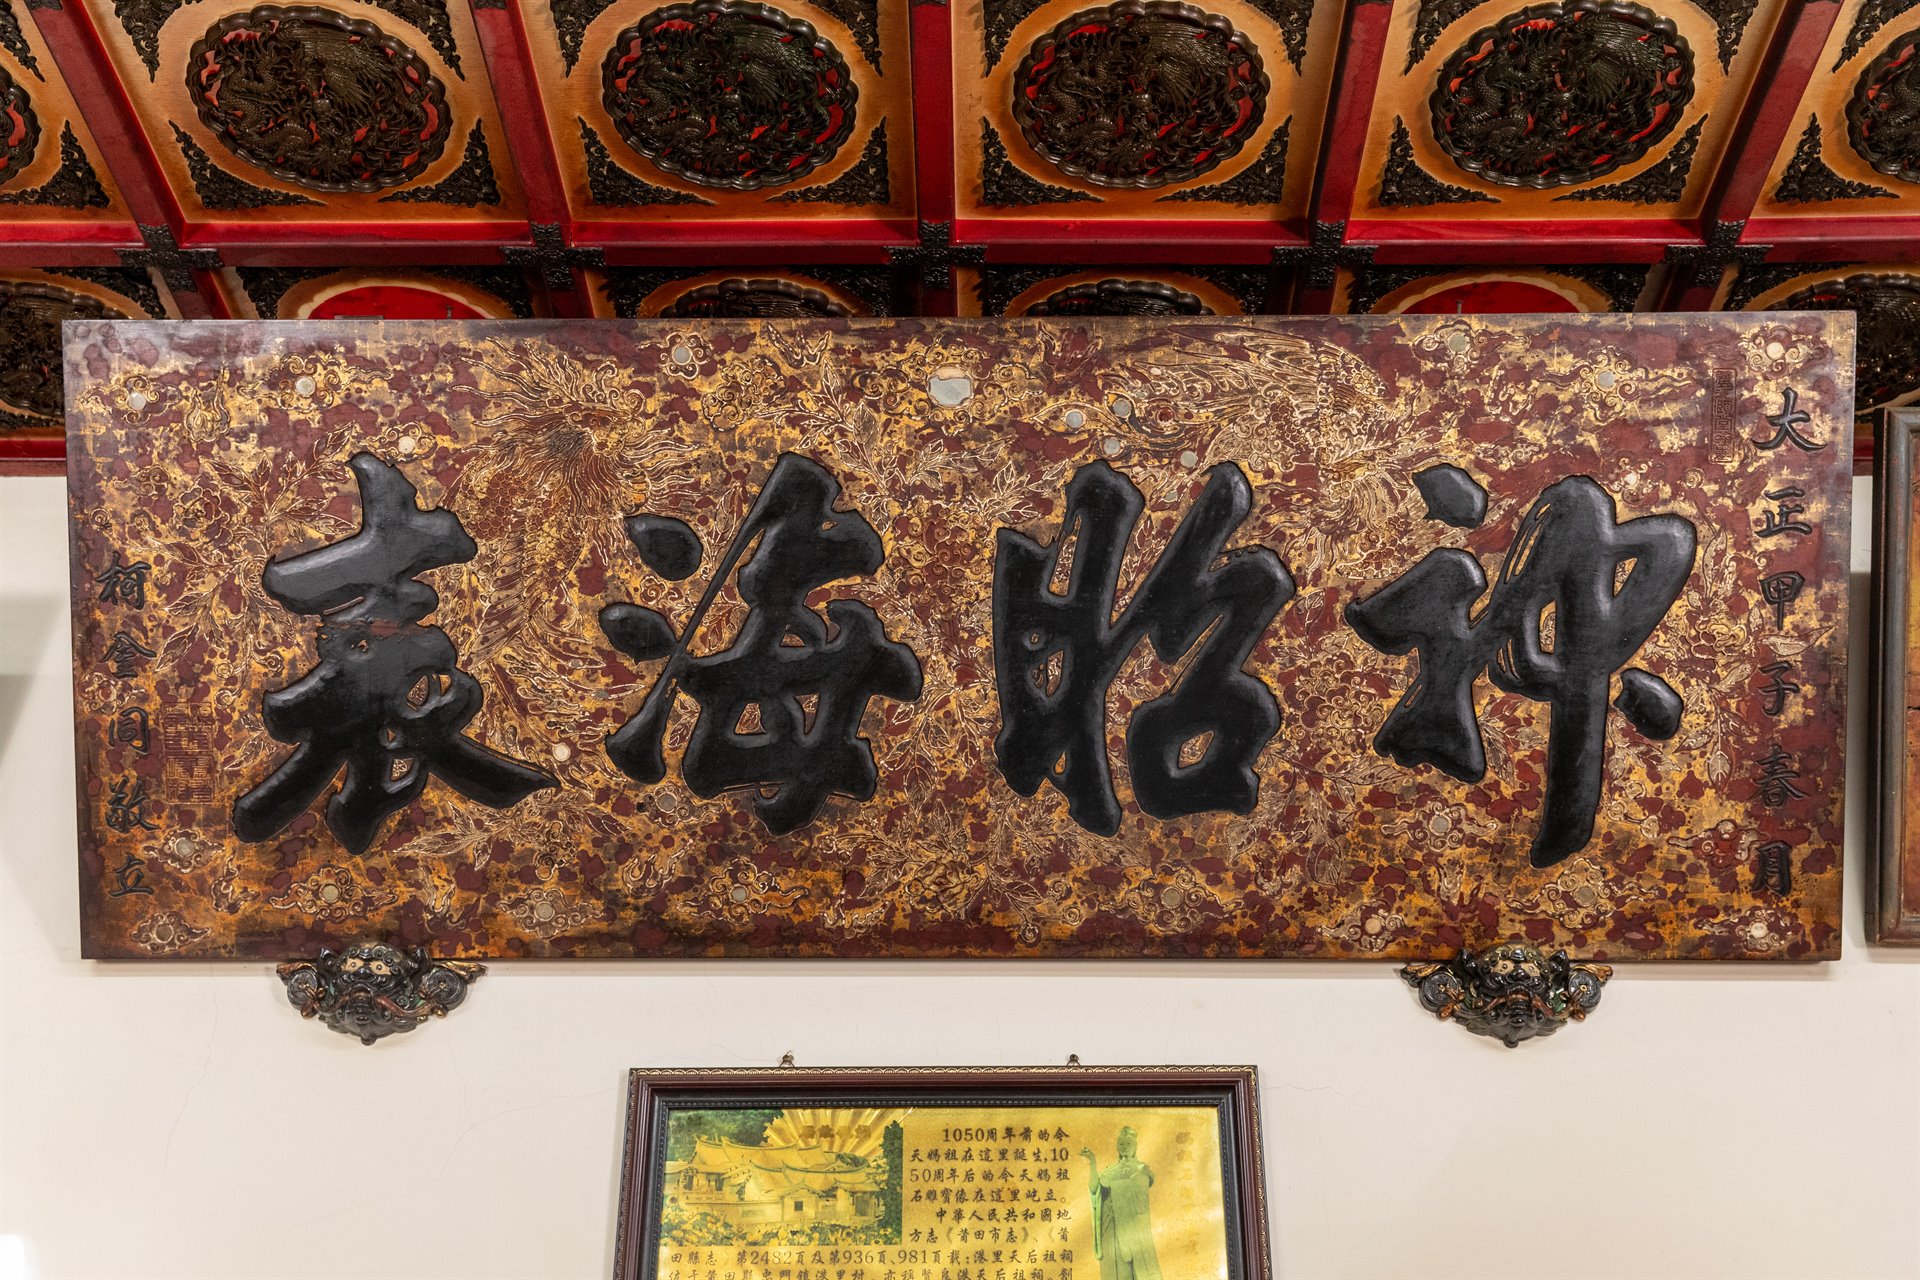 大正甲子春月
神昭海表
柯同敬立
1050周年前的今
天媽祖在這里誕生,10
50周年后的今天媽祖
石雕寶像在這里屹立。
中華人民共和國地
方志《莆田市志》、《莆
田縣志》第2482頁及第936頁、981頁載:港里天后祖祠
位于莆田縣忠門鎮港里村,亦稱賢良港天后祖祠。創